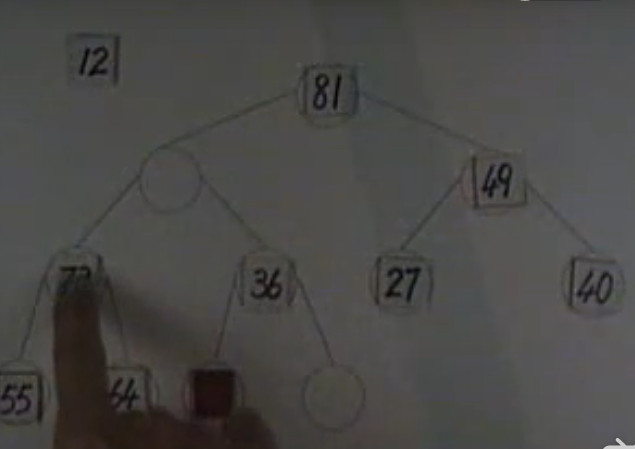 12
81
49
36
27
40
55
64